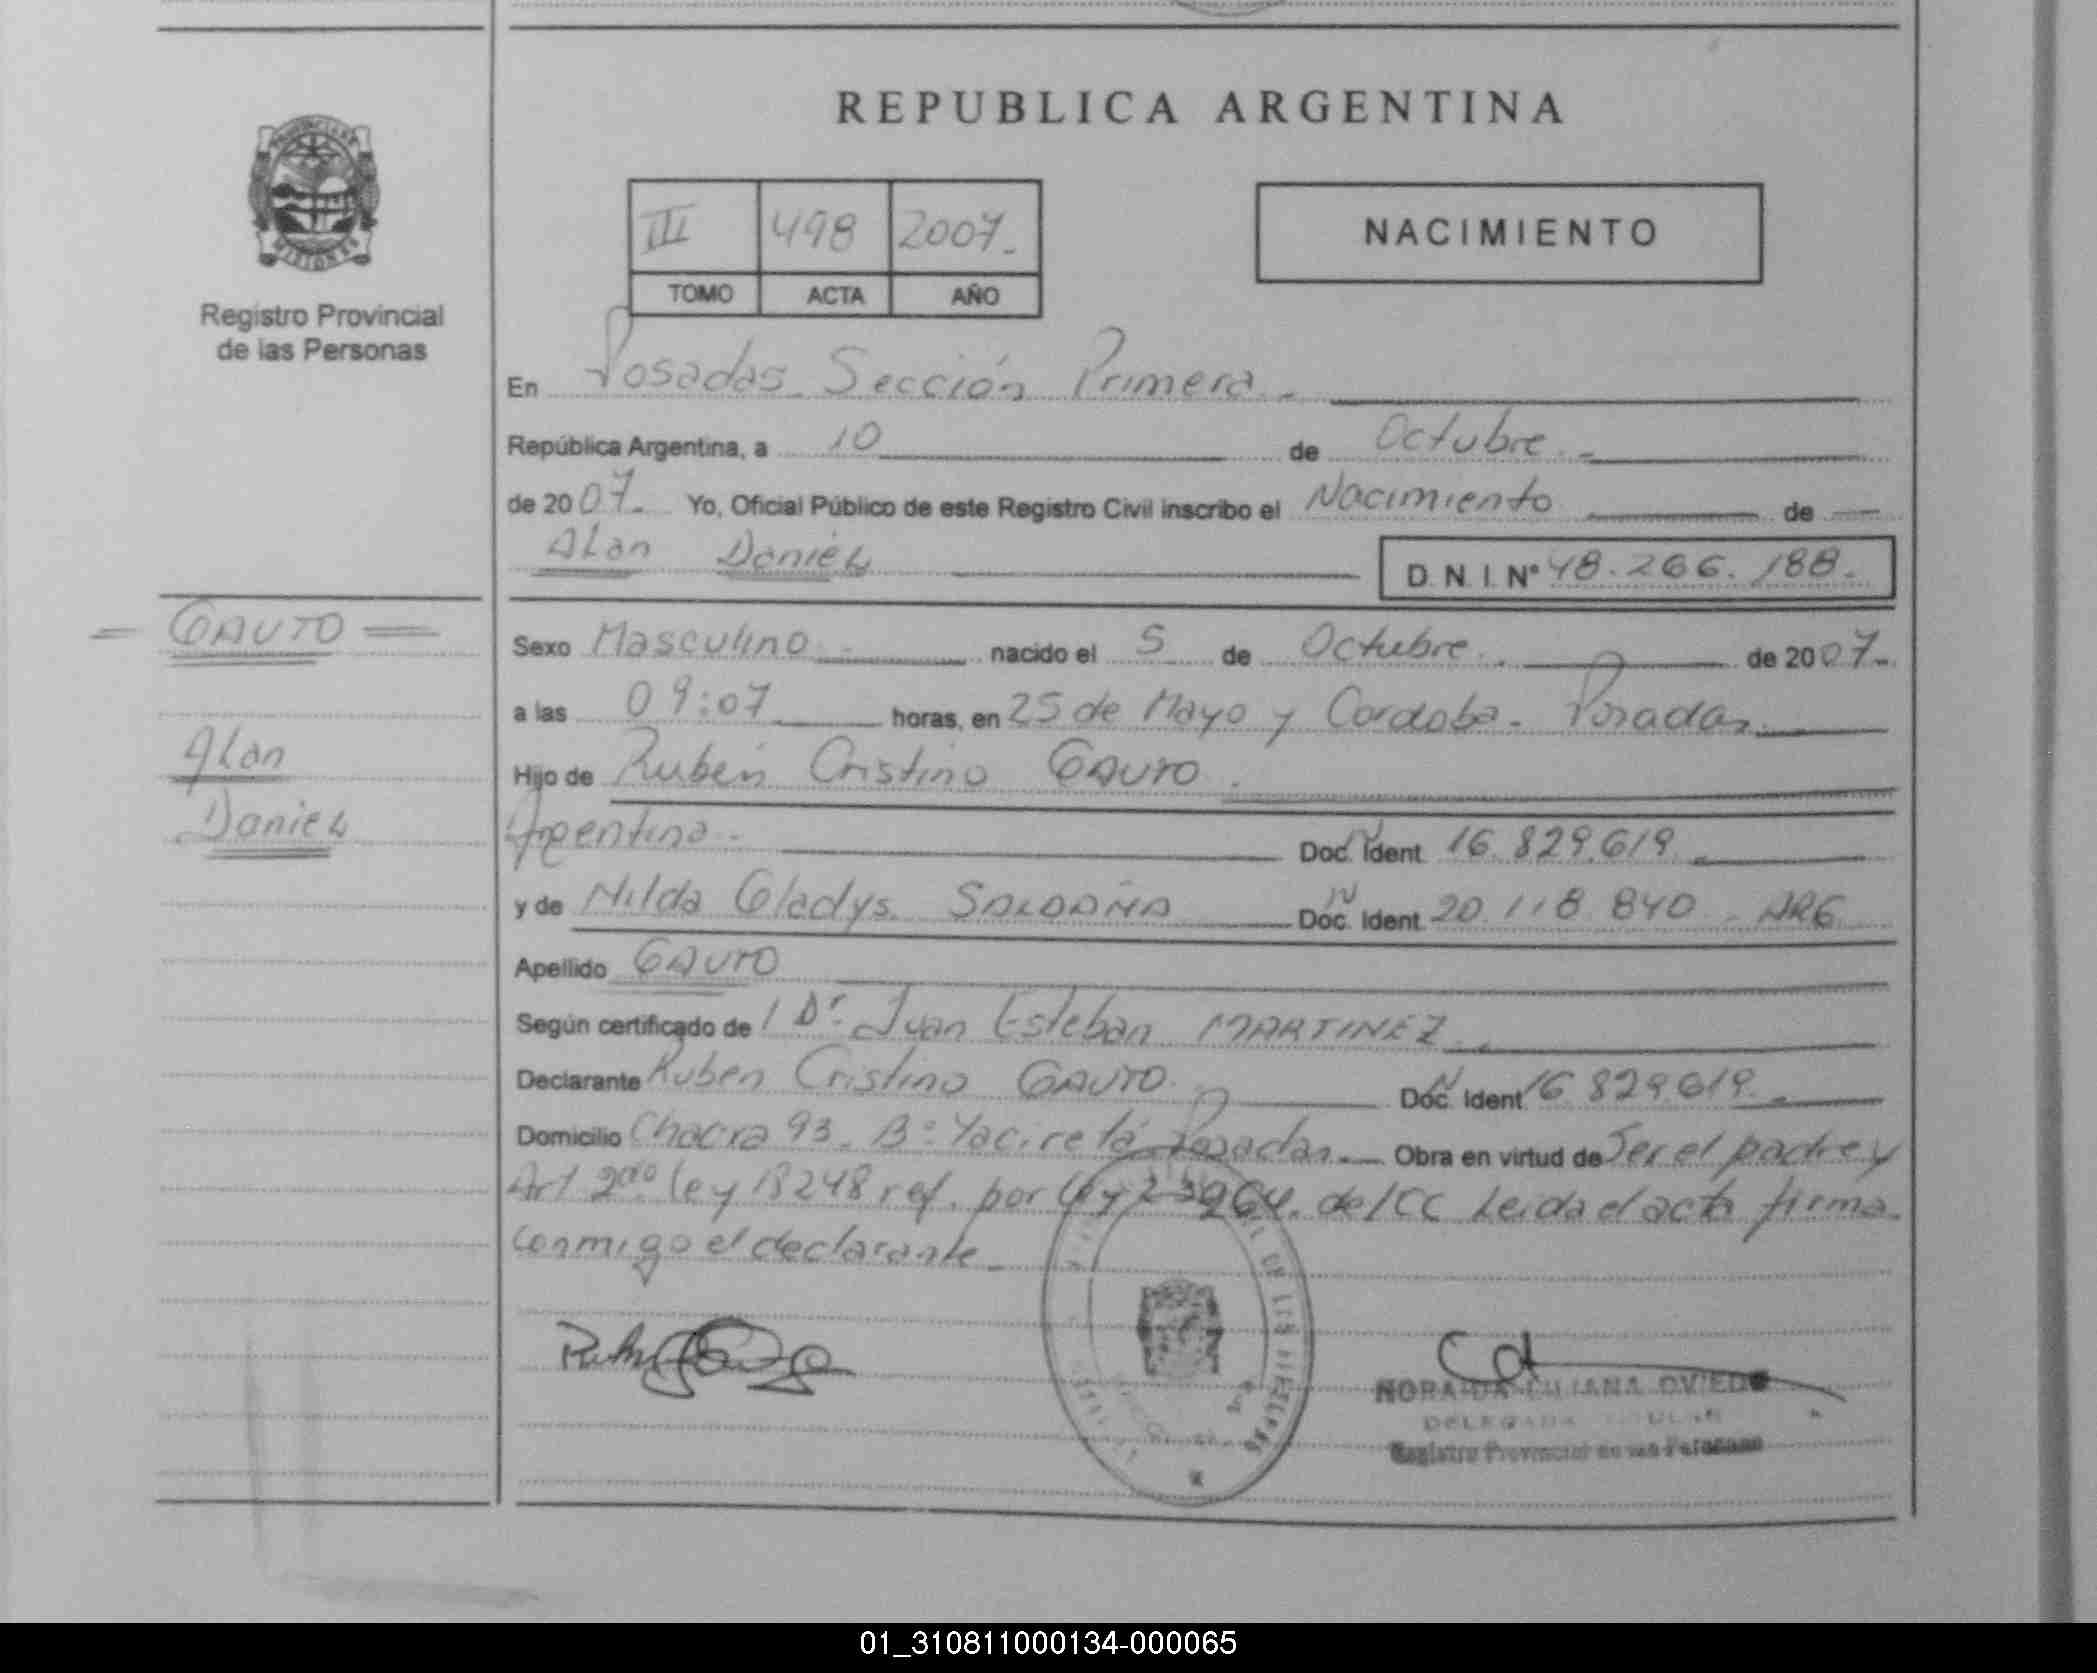 REPUBLICA ARGENTINA
PROVINCIA DE
MISIONES
Registro Provincial
de las Personas
III 498 2007.
TOMO ACTA AÑO
NACIMIENTO
En Posadas Sección Primera.
República Argentina, a 10 de Octubre.
de 2007. Yo, Oficial Público de este Registro Civil inscribo el Nacimiento de
Alan Daniel D.N.I.Nº 48.266.188.
GAUTO
Alan
Daniel
Sexo Masculino nacido el 5 de Octubre. de 2007.
a las 09:07 horas, en 25 de Mayo y Cordoba. Posadas.
Hijo de Rubén Cristino GAUTO.
Argentina. Doc. Ident. 16.829.619.
y de Nilda Gladys SALDAÑA Doc. Ident. 20.118.840 ARG
Apellido GAUTO
Según certificado de / Dr. Juan Esteban MARTINEZ.
Declarante Ruben Cristino GAUTO. Doc. Ident. 16.829.619.
Domicilio Chacra 93. Bº Yaciretá Posadas. Obra en virtud de Ser el padre y
Art 2do ley 18248 ref. por ley 23264. del CC Leida el acta firma
conmigo el declarante.
DELEGADA TITULAR
Registro Provincial de las Personas
01_310811000134-000065